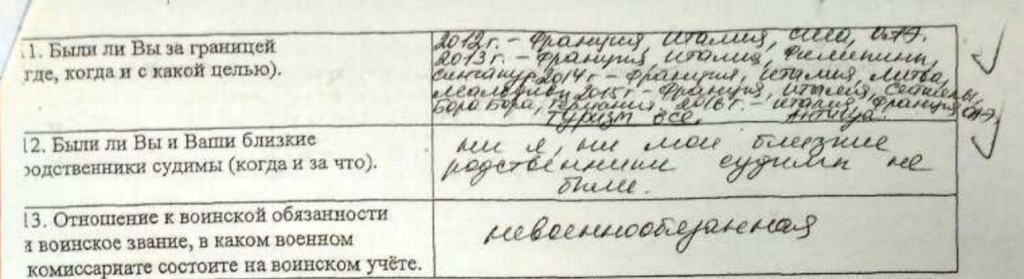 11. Были ли Вы за границей
где, когда и с какой целью).
2012г. - Франция, Италия, сша, ОАЭ.
2013г. - Франция, Италия, Филиппины,
Сингапур 2014г - Франция, Италия, Литва,
Мальдивы 2015г - Франция, Италия, Сейшелы,
Бора Бора, Германия, 2016г. - Италия, Франция, ОАЭ,
Туризм все. Антигуа.
12. Были ли Вы и Ваши близкие
родственники судимы (когда и за что).
ни я, ни мои близкие
родственники судимы не
были.
13. Отношение к воинской обязанности
и воинское звание, в каком военном
комиссариате состоите на воинском учёте.
невоеннообязанная